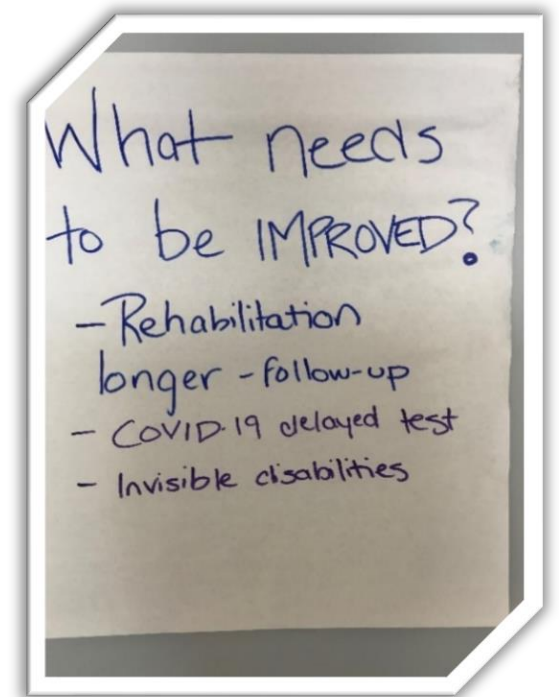 What needs
to be IMPROVED?
- Rehabilitation
longer - follow-up
- COVID-19 delayed test
- Invisible disabilities